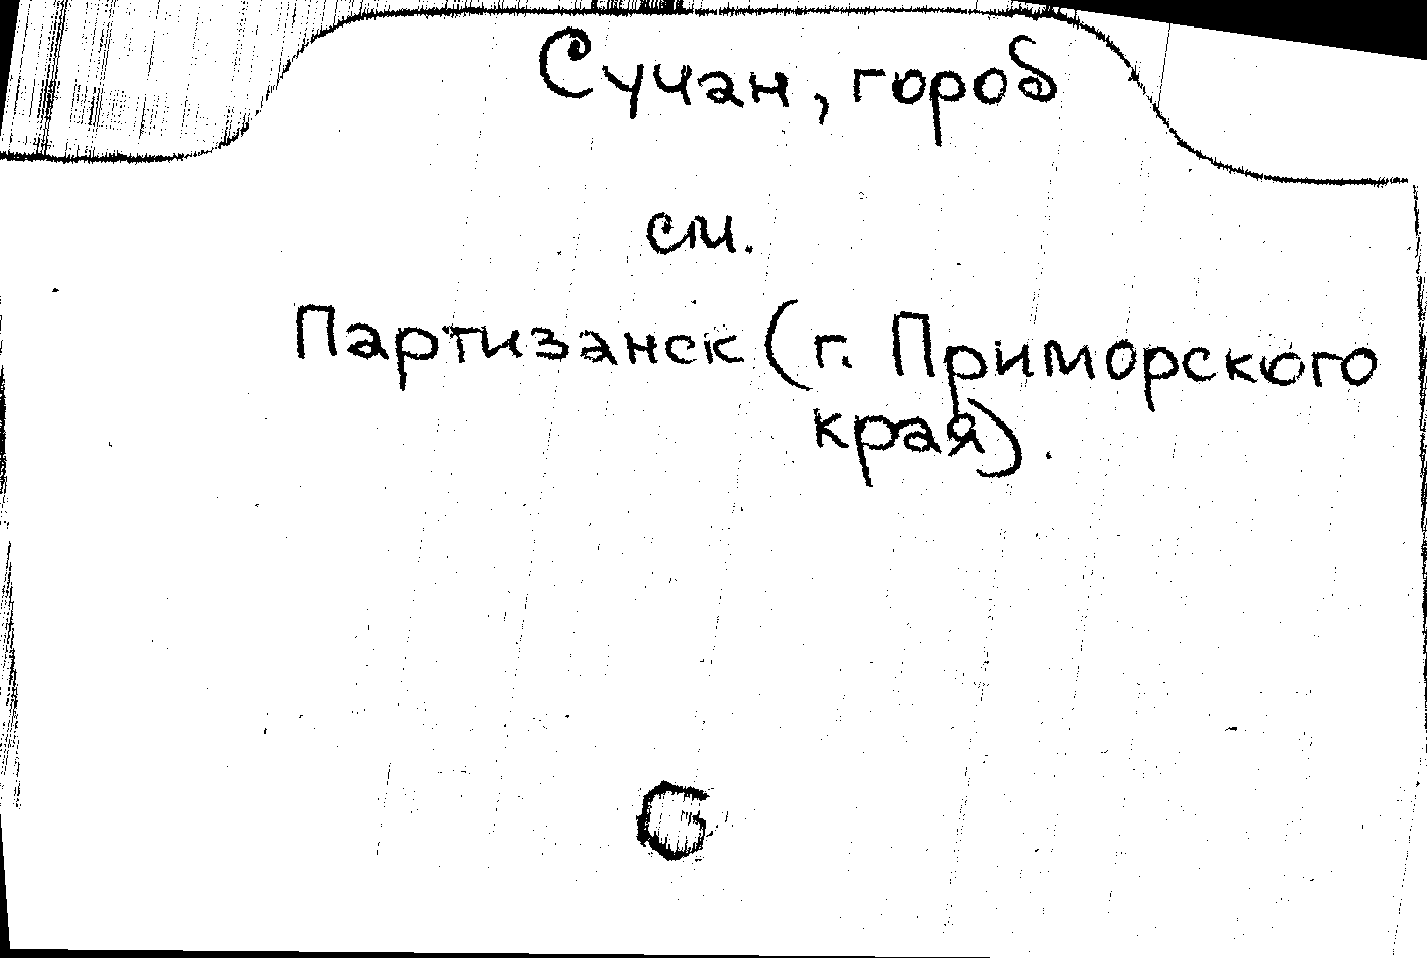 Сучан, город
см.
Партизанск (г. Приморского
края).